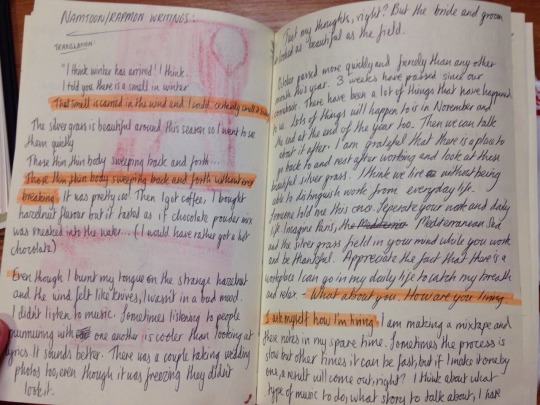 NAMJOON/RAPMON WRITINGS:
TRANSLATION
"I think winter has arrived! I think.
I told you there is a smell in winter
That smell is carried in the wind and I could
The silver grass is beautiful around this season so I went to see
them quickly
Those thin thin body sweeping back and forth...
Those thin thin body sweeping back and forth without ever
breaking. It was pretty cool. Then I got coffee, I bought
hazelnut flavour but it tasted as if chocolate powder mix
was sneaked into the water... (I would have rather got a hot
chocolate)
Even though I burnt my tongue on the strange hazelnut
and the wind felt like knives, I wasn't in a bad mood.
I didn't listen to music. Sometimes listening to people
murmuring with one another is cooler than looking at
lyrics. It sounds better. There was a couple taking wedding
photos too, even though it was freezing they didn't
lose it.
Just my thoughts, right? But the bride and groom
looked as beautiful as the field.
passed more quickly and than any other
month this year. 3 weeks have passed since our
comeback. There have been a lot of things that have happened
to us. Lots of things will happen to us in November and
the end at the end of the year too. Then we can talk
about it after. I am grateful that there is a place to
go back to and rest after working and look at these
beautiful silver grass. I think we live without being
able to distinguish work from everyday life.
Someone told me this once. Seperate your work and daily
life. Imagine Paris, the Mediterranean Sea
and the silver grass field in your mind while you work
and be thankful. Appreciate the fact that there is a
workplace I can go in my daily life to catch my breath
and relax. - What about you. How are you living
I ask myself how I'm living. I am making a mixtape and
these notes in my spare time. Sometimes the process is
slow but other times it can be fast, but if I make it one by
one, a result will come out, right? I think about what
type of music to do, what story to talk about, I have